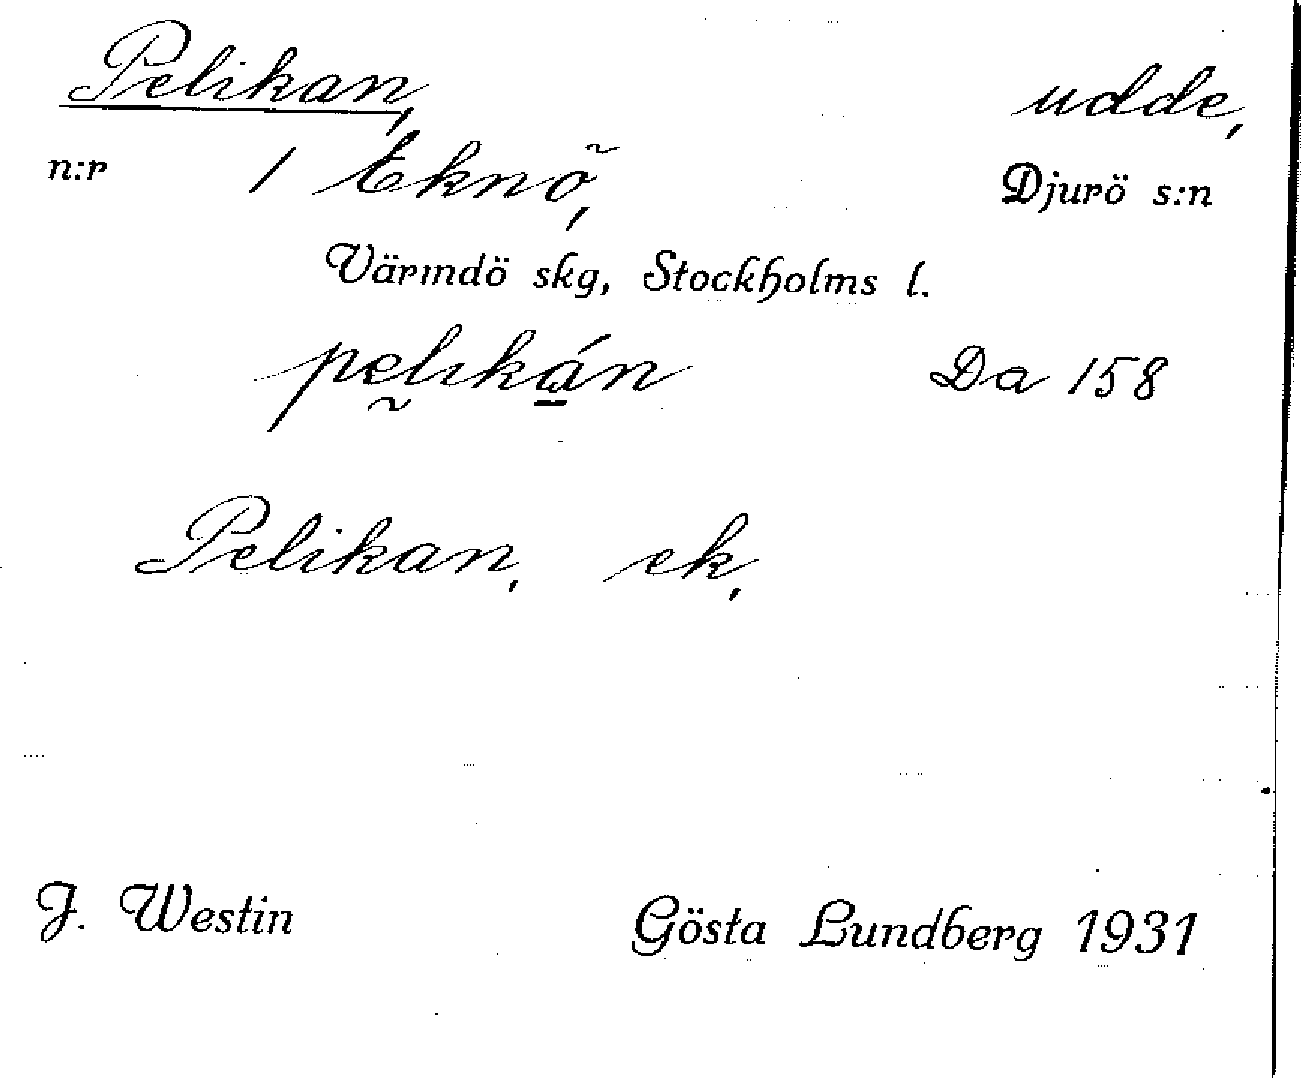 Pelikan, udde,
n:r 1 Eknö, Djurö s:n
Värmdö skg, Stockholms l.
pełikán Da 158
Pelikan, ek,
J. Westin Gösta Lundberg 1931